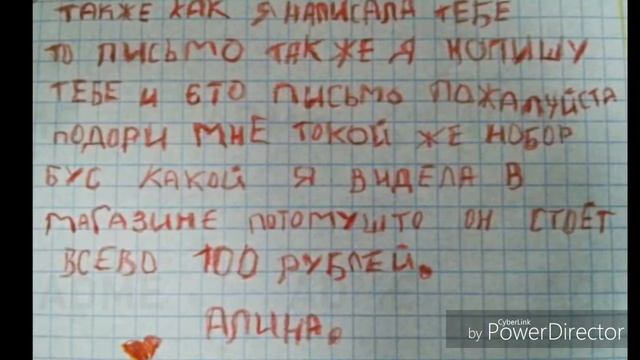 ТАКЖЕ КАК Я НАПИСАЛА ТЕБЕ
ТО ПИСЬМО ТАКЖЕ Я НОПИШУ
ТЕБЕ И ЄТО ПИСЬМО ПОЖАЛУЙСТА
ПОДОРИ МНЕ ТОКОЙ ЖЕ НОБОР
БУС КАКОЙ Я ВИДЕЛА В
МАГАЗИНЕ ПОТОМУШТО ОН СТОЕТ
ВСЕВО 100 РУБЛЕЙ.
АЛИНА.
CyberLink
by PowerDirector